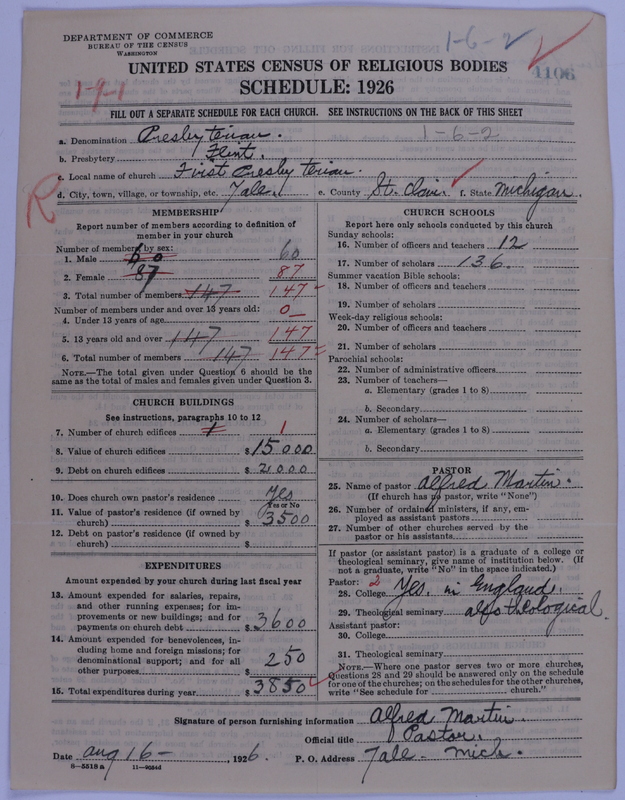 DEPARTMENT OF COMMERCE
BUREAU OF THE CENSUS
WASHINGTON
1-6-2
4106
1-9-1
UNITED STATES CENSUS OF RELIGIOUS BODIES
SCHEDULE: 1926
FILL OUT A SEPARATE SCHEDULE FOR EACH CHURCH. SEE INSTRUCTIONS ON THE BACK OF THIS SHEET
1-6-2
a. Denomination Presbyterian.
b. Presbytery Flint.
c. Local name of church First Presbyterian.
R
d. City, town, village, or township, etc. Yale. e. County St. Clair. f. State Michigan.
MEMBERSHIP
Report number of members according to definition of member in your church
Number of members by sex:
1. Male 60 60
2. Female 87 87
3. Total number of members 147 147
Number of members under and over 13 years old:
4. Under 13 years of age 0
5. 13 years old and over 147 147
6. Total number of members 147 147
NOTE.—The total given under Question 6 should be the same as the total of males and females given under Question 3.
CHURCH BUILDINGS
See instructions, paragraphs 10 to 12
7. Number of church edifices 1 1
8. Value of church edifices $15000
9. Debt on church edifices $2000
10. Does church own pastor's residence Yes
Yes or No
11. Value of pastor's residence (if owned by church) $3500
12. Debt on pastor's residence (if owned by church) $
EXPENDITURES
Amount expended by your church during last fiscal year
13. Amount expended for salaries, repairs, and other running expenses; for improvements or new buildings; and for payments on church debt $3600
14. Amount expended for benevolences, including home and foreign missions; for denominational support; and for all other purposes $250
15. Total expenditures during year $3850
CHURCH SCHOOLS
Report here only schools conducted by this church
Sunday schools:
16. Number of officers and teachers 12
17. Number of scholars 136.
Summer vacation Bible schools:
18. Number of officers and teachers
19. Number of scholars
Week-day religious schools:
20. Number of officers and teachers
21. Number of scholars
Parochial schools:
22. Number of administrative officers
23. Number of teachers—
a. Elementary (grades 1 to 8)
b. Secondary
24. Number of scholars—
a. Elementary (grades 1 to 8)
b. Secondary
PASTOR
25. Name of pastor Alfred Martin.
(If church has no pastor, write "None")
26. Number of ordained ministers, if any, employed as assistant pastors
27. Number of other churches served by the pastor or his assistants
If pastor (or assistant pastor) is a graduate of a college or theological seminary, give name of institution below. (If not a graduate, write "No" in the space indicated.)
Pastor: 2
28. College Yes, in England.
29. Theological seminary also theological.
Assistant pastor:
30. College
31. Theological seminary
NOTE.—Where one pastor serves two or more churches, Questions 28 and 29 should be answered only on the schedule for one of the churches; on the schedules for the other churches, write "See schedule for church."
Signature of person furnishing information Alfred Martin.
Official title Pastor.
Date Aug 16-, 1926. P. O. Address Yale. Mich.
8-5518 a